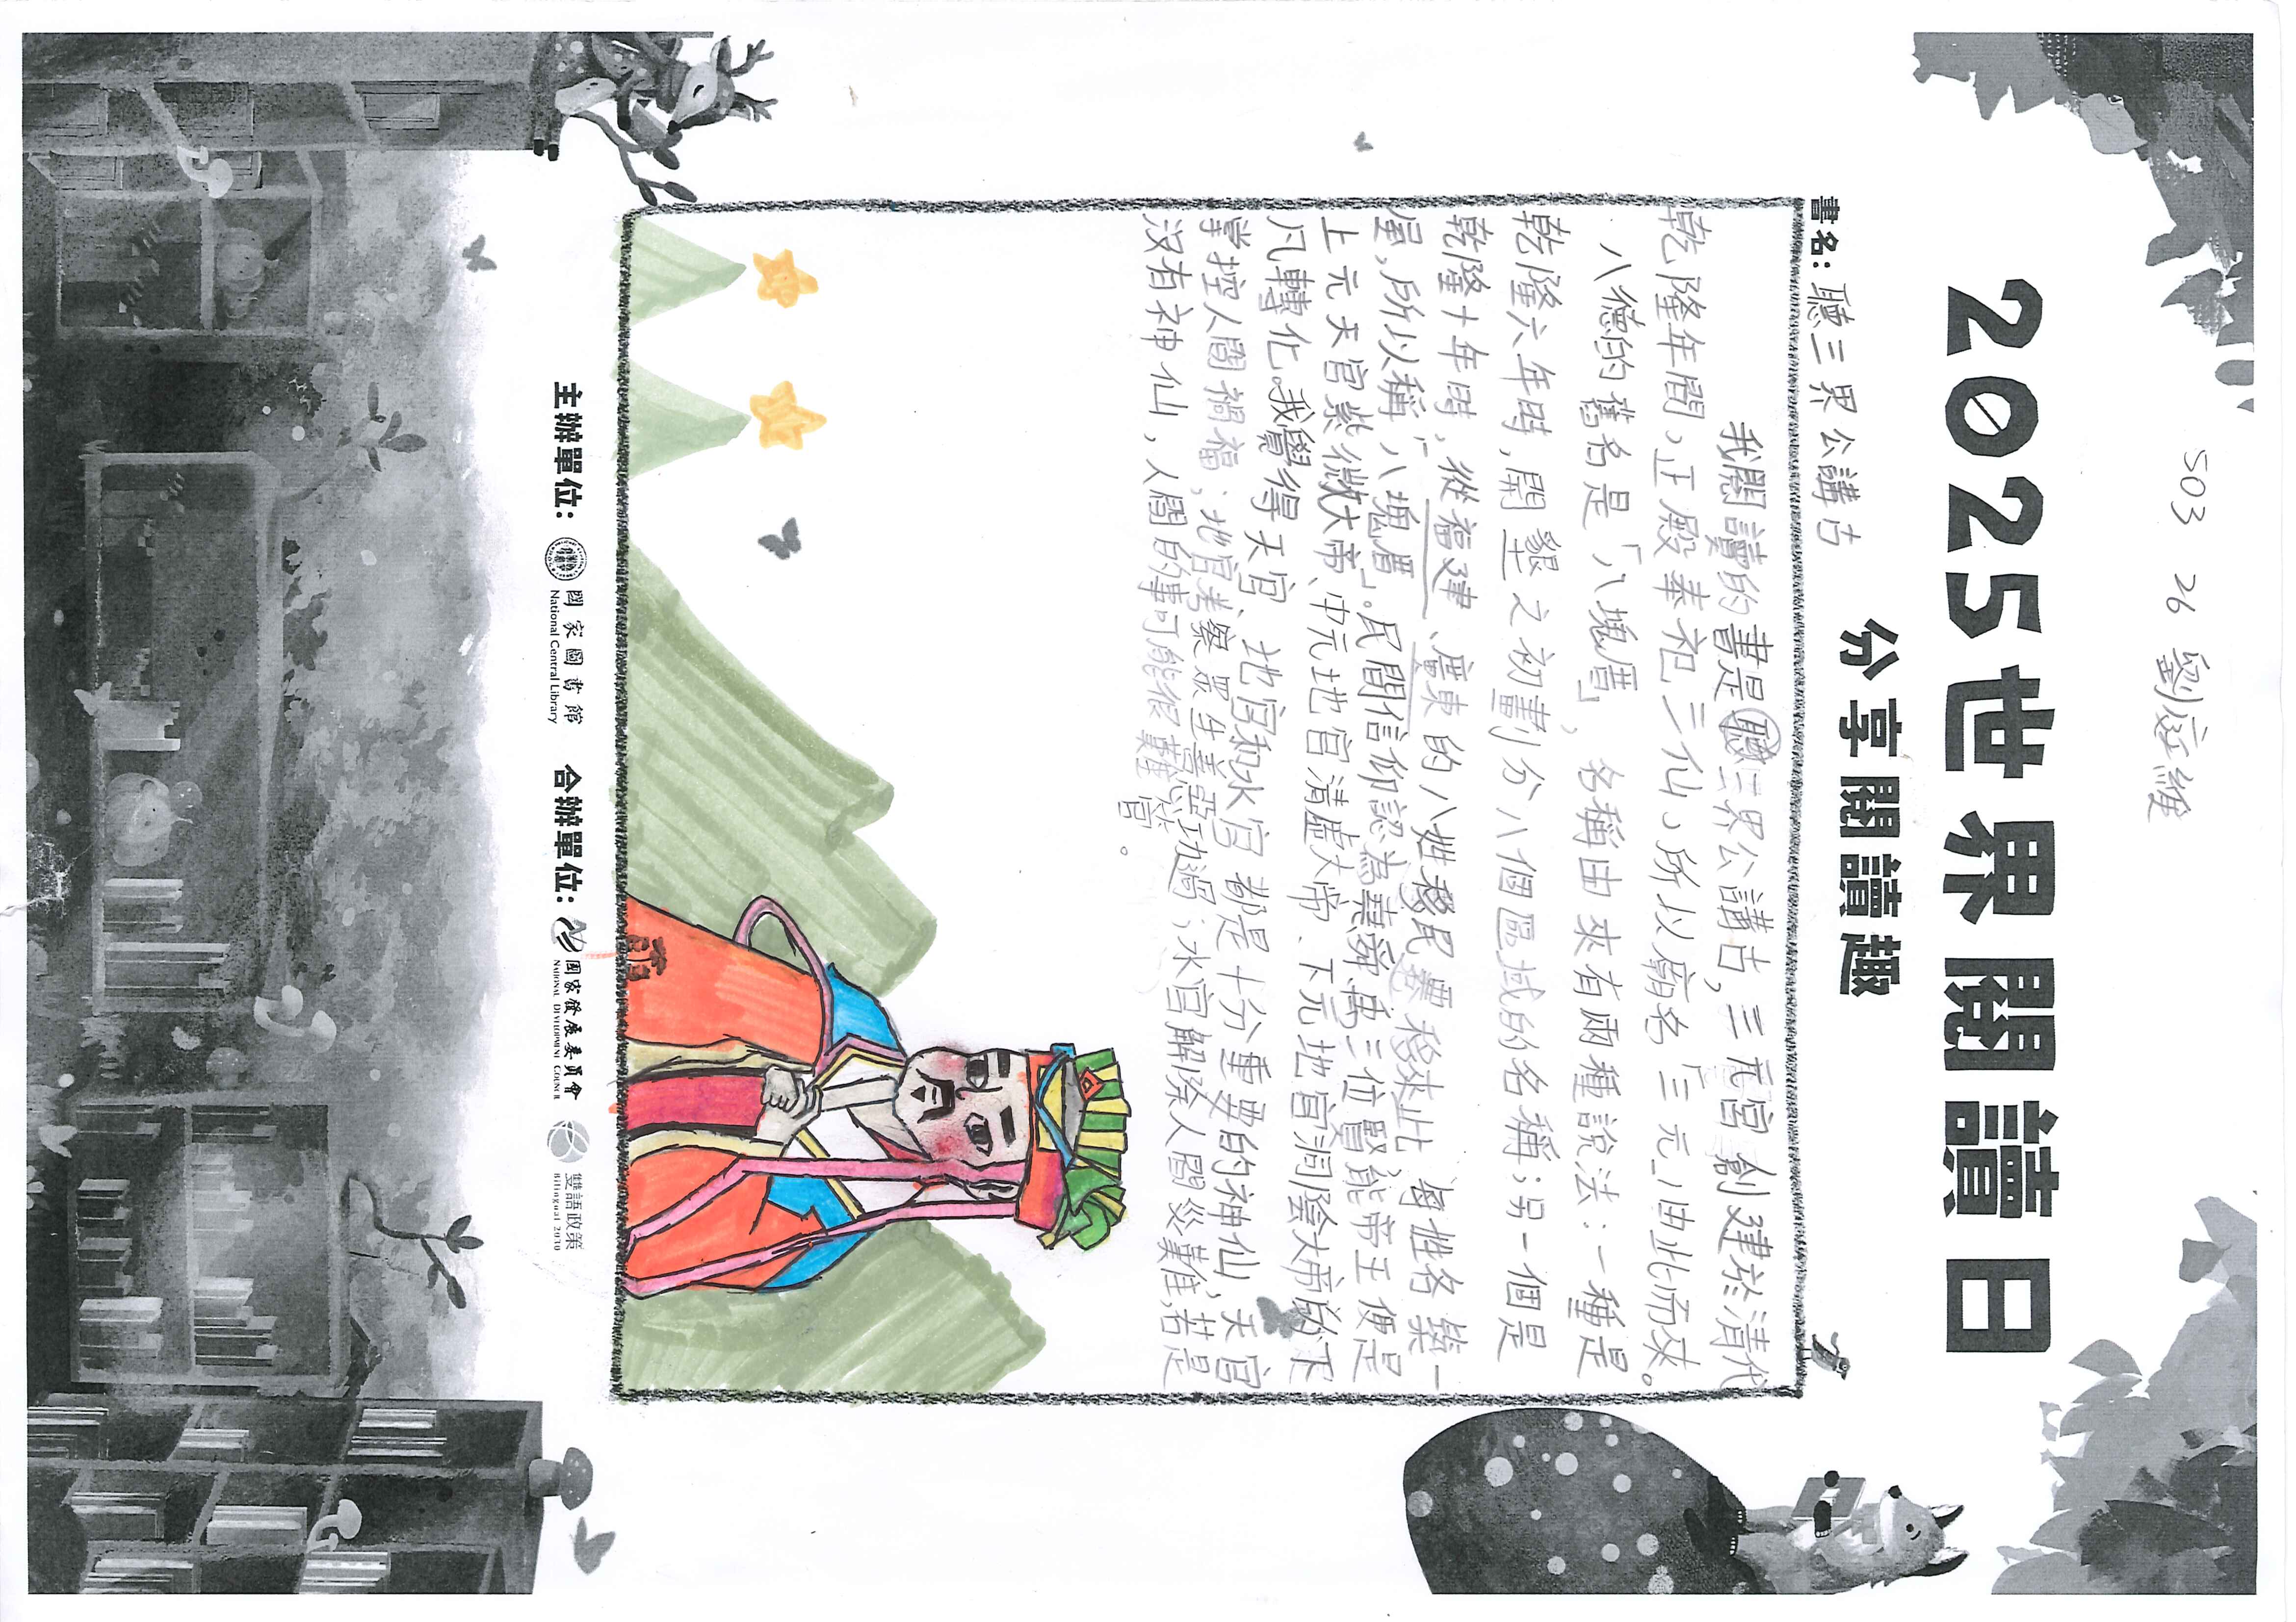 503 26 劉庭維
2025世界閱讀日
分享閱讀趣
書名：聽三界公講古
我閱讀的書是聽三界公講古，三元宮創建於清代
乾隆年間，正殿奉祀三仙，所以廟名「三元」由此而來。
八德的舊名是「八塊厝」，名稱由來有兩種說法：一種是
乾隆六年時，開墾之初劃分八個區域的名稱；另一個是
乾隆十年時，從福建、廣東的八姓移民要移來此，每姓各築一
屋，所以稱「八塊厝」。民間信仰認為堯舜禹三位賢能帝王便是
上元天官紫微大帝、中元地官清虛大帝、下元地官洞陰大帝的下
凡轉化。我覺得天官、地官和水官都是十分重要的神仙，天官
掌控人間禍福；地官考察眾生善惡功過；水官解除人間災難，若是
沒有神仙，人間的事可能很難管。
主辦單位： 國家圖書館 合辦單位： 國家發展委員會 雙語政策
National Central Library NATIONAL DEVELOPMENT COUNCIL Bilingual 2030